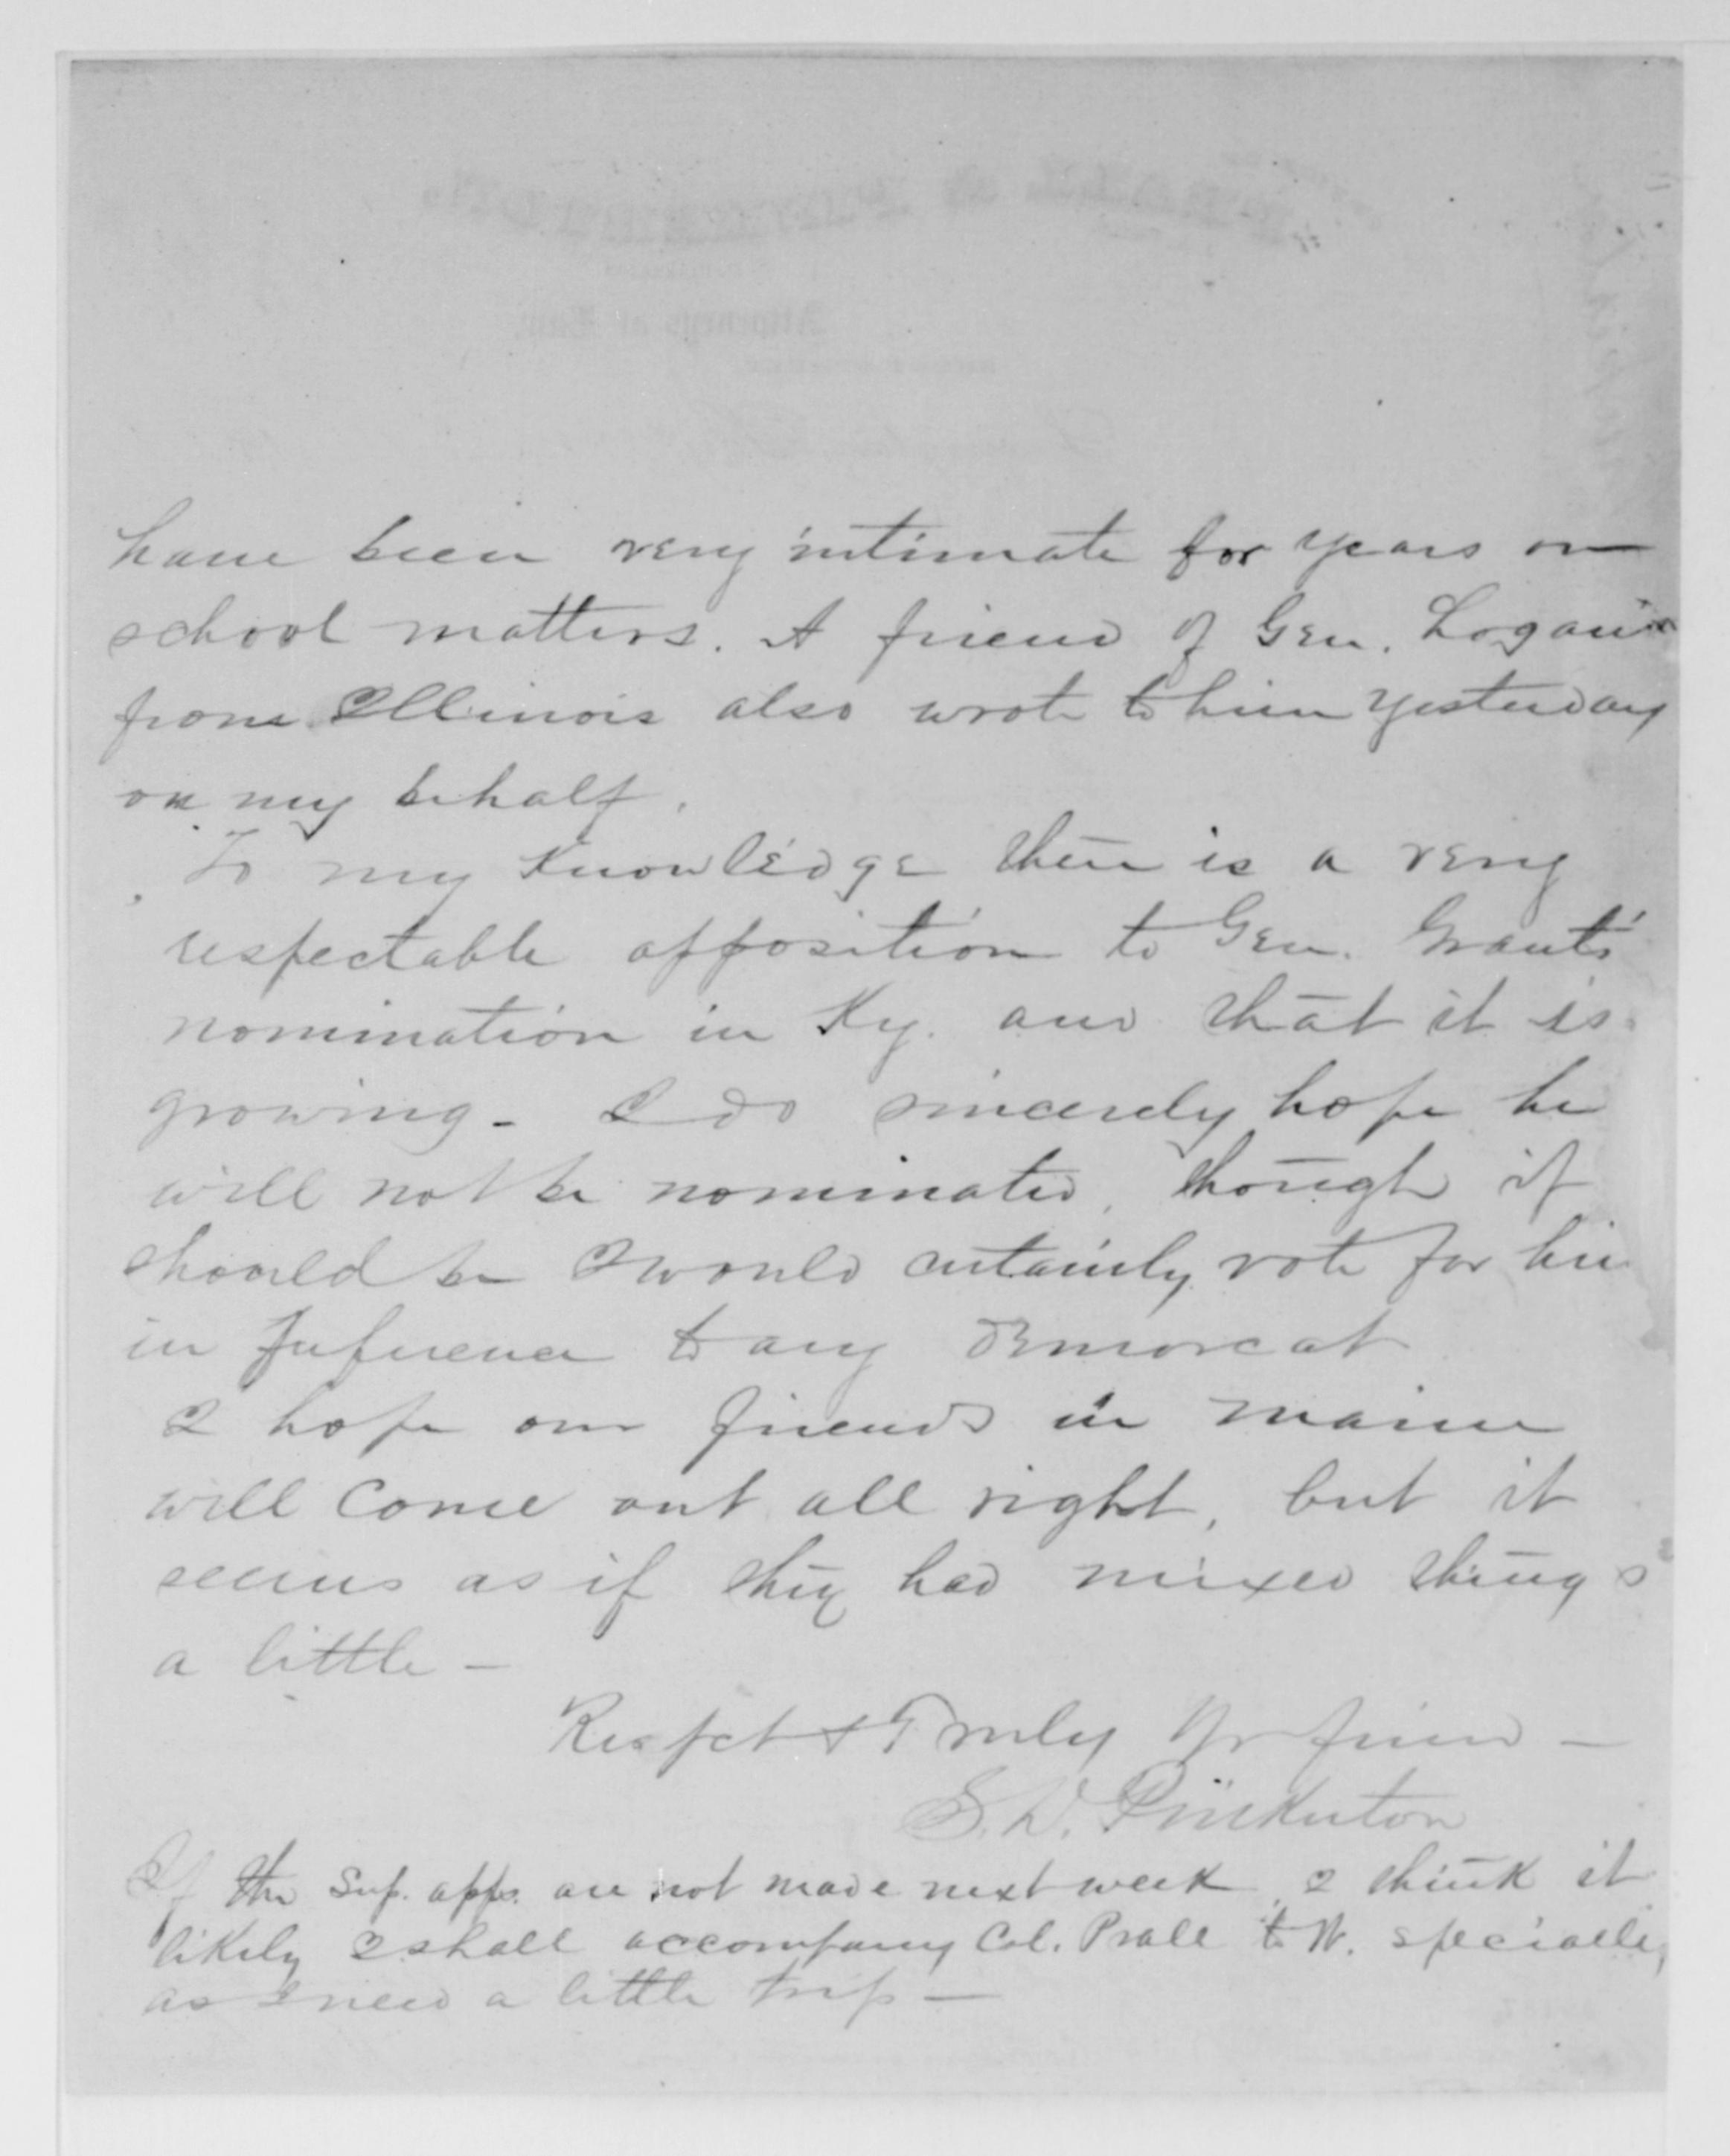 Attorneys at Law.
have been very intimate for years on
school matters. A friend of Gen. Logan's
from Illinois also wrote to him yesterday
on my behalf.
To my knowledge there is a very
respectable opposition to Gen. Grant's
nomination in Ky. and that it is
growing - I do sincerely hope he
will not be nominated, though if
should be I would certainly vote for him
in preference to any Democrat
I hope our friends in Maine
will come out all right, but it
seems as if they had mixed things
a little -
Respct & Truly Yr friend -
S. D. Pinkerton
If the Sup. apps. are not made next week, I think it
likely I shall accompany Col. Prall to W. specially,
as I need a little trip -